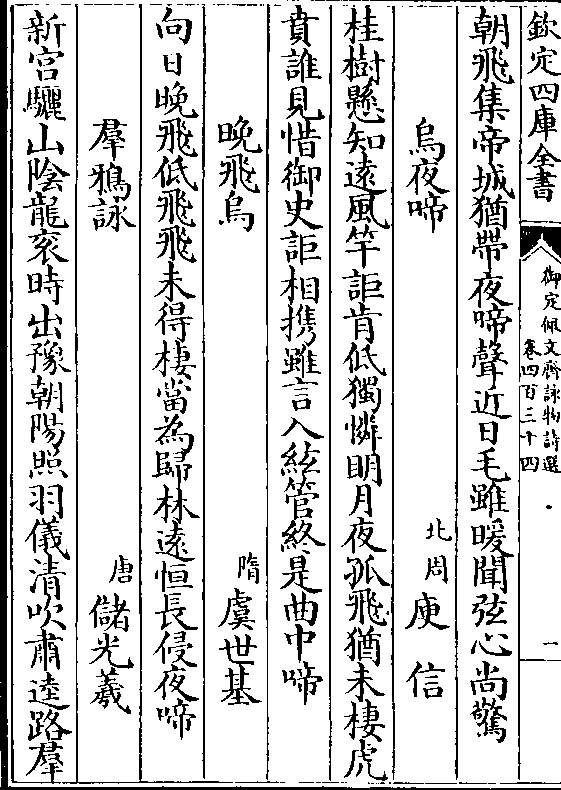 欽定四庫全書
御定佩文齋詠物詩選
卷四百三十四
一
朝飛集帝城猶帶夜啼聲近日毛雖暖聞弦心尚驚
烏夜啼 北周 庾信
桂樹懸知遠風竿詎肯低獨憐明月夜孤飛猶未棲虎
賁誰見惜御史詎相攜雖言入絃管終是曲中啼
晚飛烏 隋 虞世基
向日晚飛低飛飛未得棲當為歸林遠恒長侵夜啼
羣鴉詠 唐 儲光羲
新宮驪山陰龍衮時出豫朝陽照羽儀清吹肅逵路羣